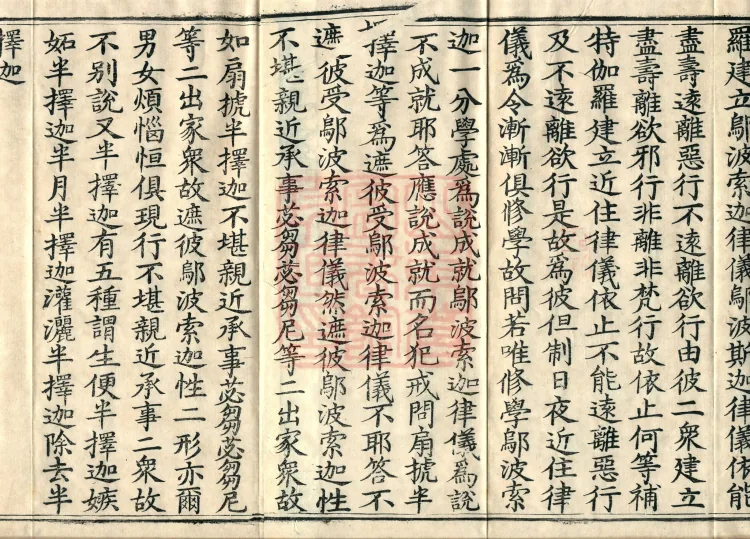 羅建立鄔波索迦律儀鄔波斯迦律儀依能
盡壽遠離惡行不遠離欲行由彼二衆建立
盡壽離欲邪行非離非梵行故依止何等補
特伽羅建立近住律儀依止不能遠離惡行
及不遠離欲行是故爲彼但制日夜近住律
儀爲令漸漸俱修學故問若唯修學鄔波索
迦一分學處爲說成就鄔波索迦律儀爲說
不成就耶答應說成就而名犯戒問扇搋半
擇迦等爲遮彼受鄔波索迦律儀不耶答不
遮彼受鄔波索迦律儀然遮彼鄔波索迦性
不堪親近承事苾芻苾芻尼等二出家衆故
如扇搋半擇迦不堪親近承事苾芻苾芻尼
等二出家衆故遮彼鄔波索迦性二形亦爾
男女煩惱恒俱現行不堪親近承事二衆故
不別說又半擇迦有五種謂生便半擇迦嫉
妬半擇迦半月半擇迦灌灑半擇迦除去半
擇迦